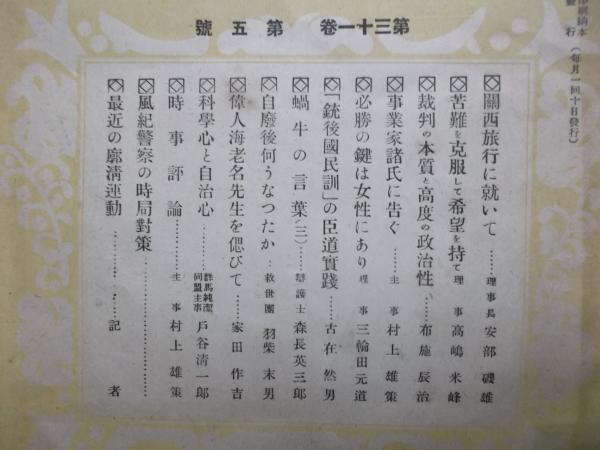 第三十一卷 第五號
印刷納本
發行（每月一回十日發行）
◇關西旅行に就いて……理事長 安部磯雄
◇苦難を克服して希望を持て 理事 高嶋米峰
◇裁判の本質と高度の政治性……布施辰治
◇事業家諸氏に告ぐ……主事 村上雄策
◇必勝の鍵は女性にあり 理事 三輪田元道
◇「銃後國民訓」の臣道實踐……古在然男
◇蝸牛の言葉（三）……辯護士 森長英三郎
◇自廢後何うなつたか…救世團 羽柴末男
◇偉人海老名先生を偲びて……家田作吉
◇科學心と自治心………群馬純潔同盟主事 戶谷清一郎
◇時事評論………主事 村上雄策
◇風紀警察の時局對策………………
◇最近の廓清運動…………記者